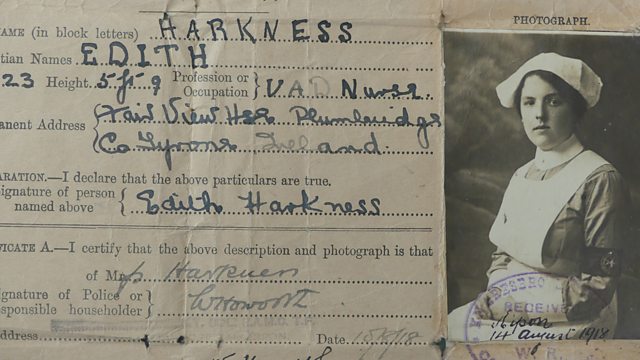 NAME (in block letters) HARKNESS
stian Names EDITH
23 Height 5ft 9 Profession or Occupation } VAD Nurse.
anent Address { Fair View Hse Plumbridge
Co Tyrone Ireland.
ARATION.—I declare that the above particulars are true.
ignature of person named above } Edith Harkness
FICATE A.—I certify that the above description and photograph is that
of M Harkness
ignature of Police or sponsible householder }
ddress Date 15/8/18
PHOTOGRAPH.
RECEIVE
Ripon
14 August 1918
W.R.